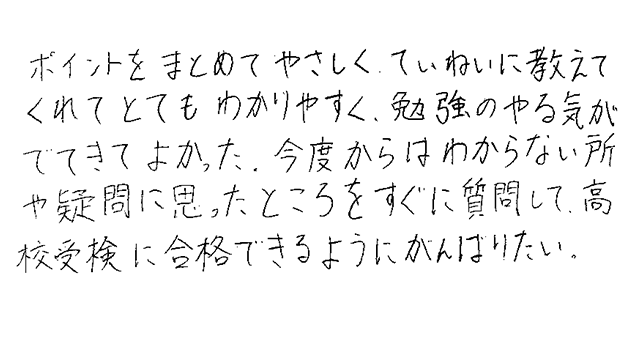 ポイントをまとめてやさしく、ていねいに教えて
くれてとてもわかりやすく、勉強のやる気が
でてきてよかった。今度からはわからない所
や疑問に思ったところをすぐに質問して、高
校受検に合格できるようにがんばりたい。